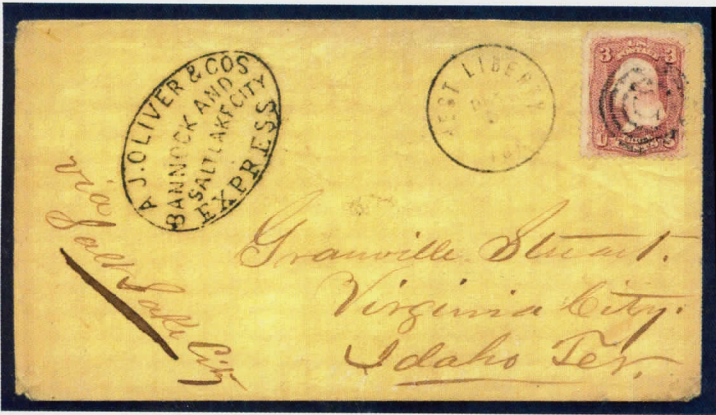 A. J. OLIVER & COS
BANNOCK AND
SALT LAKE CITY
EXPRESS
WEST LIBERTY
3 U.S. 3
POSTAGE
via
Salt Lake City
Granville Stuart.
Virginia City.
Idaho Ter.